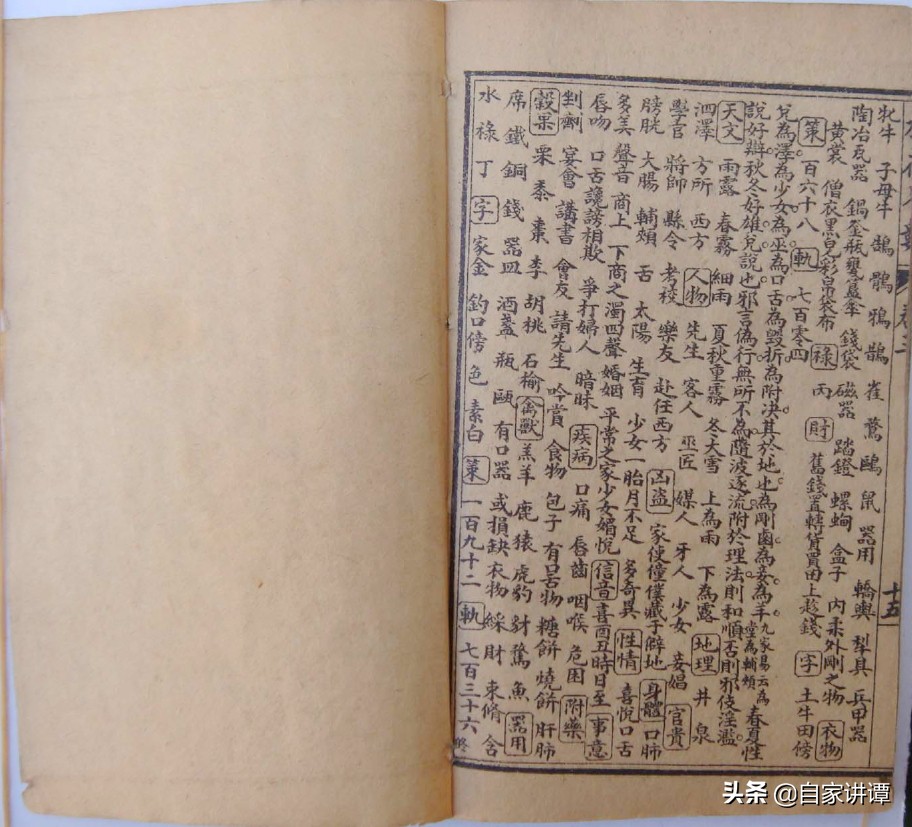 牝牛 子母牛 鵠 鶻 鴉 鵲 雀 鶩 鷗 鼠 器用 轎輿 犁具 兵甲器
陶冶瓦器 鍋釜瓶甕 錢袋 磁器 踏鐙 螺蚫 盒子 內柔外剛之物 衣物
黃裳 僧衣黑皂彩帛袋布 祿 丙 財 舊錢置轉貨買田上趁錢 字 土牛田傍
策 百六十八 軌 七百零四
兌為澤為少女為巫為口舌為毀折為附决其於地也為剛鹵為妾為羊 九家易云為常為輔頰 春夏性
說好辯秋冬好雄兌說也邪言偽行無所不為隨波逐流附於理法則和順否則邪伎淫濫
天文 雨露 春霧 細雨 夏秋重霧 冬大雪 上為雨 下為露 地理 井 泉
泗澤 方所 西方 人物 先生 客人 巫匠 媒人 牙人 少女 妾娼 官貴
學官 將帥 縣令 考校 樂友 赴任西方 凶盜 家使僮僕藏于僻地 身體 口肺
膀胱 大腸 輔頰 舌 太陽 生育 少女一胎月不足 多奇異 性情 喜悅口舌
多美 聲音 商上 下商之濁四聲 婚姻 平常之家少女媚悅 信音 喜酉丑時日至 事意
唇吻 口舌讒謗相欺 爭打婦人 暗昧 疾病 口痛 唇齒 咽喉 危困 附藥
剉劑 宴會 講書 會友 請先生 吟賞 食物 包子 有口舌物 糖餅 燒餅 肝肺
穀果 栗 黍 棗 李 胡桃 石榴 禽獸 羔羊 鹿 猿 虎豹 豺 鶩 魚 器用
席 鐵 銅 錢 器皿 酒盞 瓶 甌 有口器 或損缺 衣物 綵 財 束脩 含
水 祿 丁 字 家金 釣口傍 色 素白 策 一百九十二 軌 七百三十六 終
卷三
十五
头条 @自家讲谭